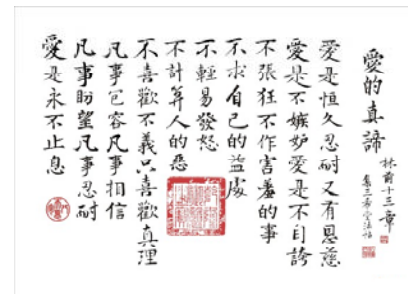 愛的真諦
林前十三章
集三希堂法帖
愛是恒久忍耐又有恩慈
愛是不嫉妒愛是不自誇
不張狂不作害羞的事
不求自己的益處
不輕易發怒
不計算人的惡
不喜歡不義只喜歡真理
凡事包容凡事相信
凡事盼望凡事忍耐
愛是永不止息